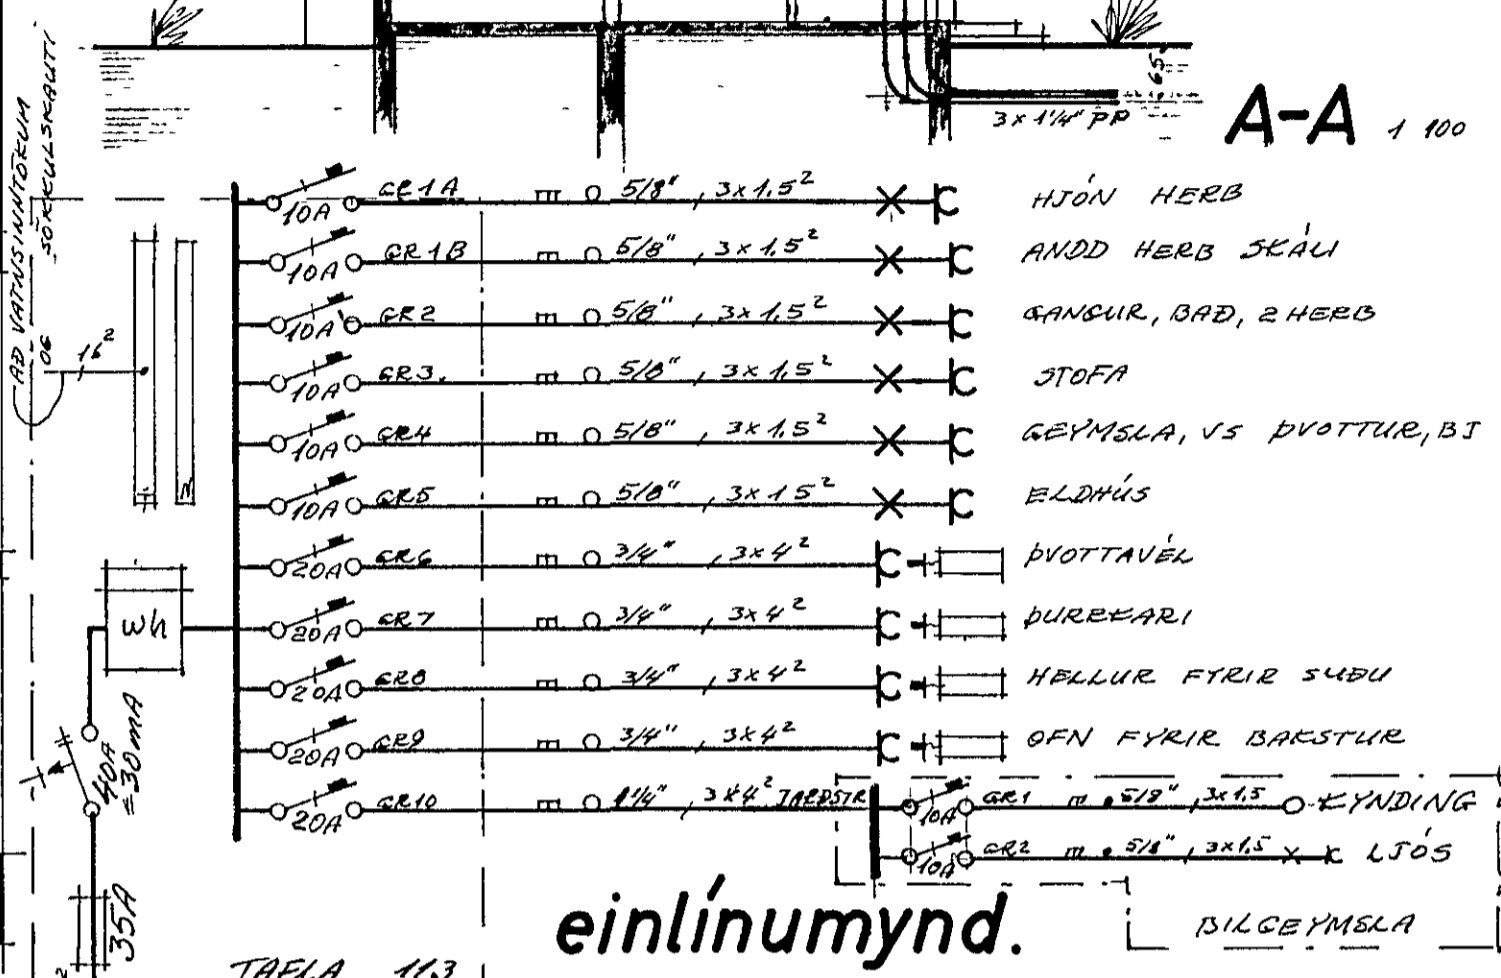 3x 1¼" PP
65
A-A 1 100
AÐ VATNSINNTÖKUM
OG SÖKKULSKAUTI
16²
10A GR1A 5/8" , 3x1.5² HJÓN HERB
10A GR1B 5/8" , 3x1.5² ANDD HERB SKÁLI
10A GR2 5/8" , 3x1.5² GANGUR, BAÐ, 2 HERB
10A GR3. 5/8" , 3x1.5² STOFA
10A GR4 5/8" , 3x1.5² GEYMSLA, VS ÞVOTTUR, BI
10A GR5 5/8" , 3x1.5² ELDHÚS
20A GR6 3/4" , 3x4² ÞVOTTAVÉL
20A GR7 3/4" , 3x4² ÞURRKARI
20A GR8 3/4" , 3x4² HELLUR FYRIR SUÐU
20A GR9 3/4" , 3x4² OFN FYRIR BAKSTUR
20A GR10 1¼" , 3x4² JARÐSTR
10A GR1 5/8" , 3x1.5 KYNDING
10A GR2 5/8" , 3x1.5 LJÓS
BILGEYMSLA
WH
40A
=30mA
35A
einlínumynd.
TAFLA 1/3